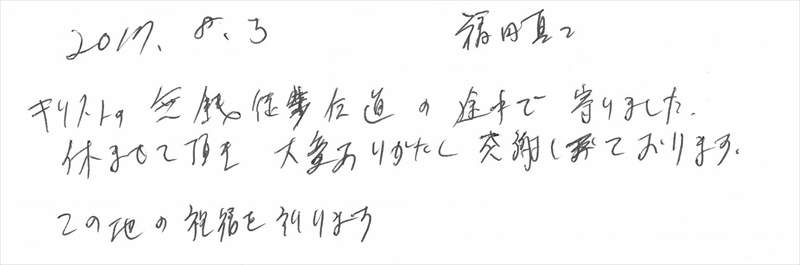 2017. 8. 3 福田真二
キリストの無銭徒歩伝道の途中で寄りました.
休ませて頂き 大変ありがたく 感謝しております.
この地の祝福を祈ります